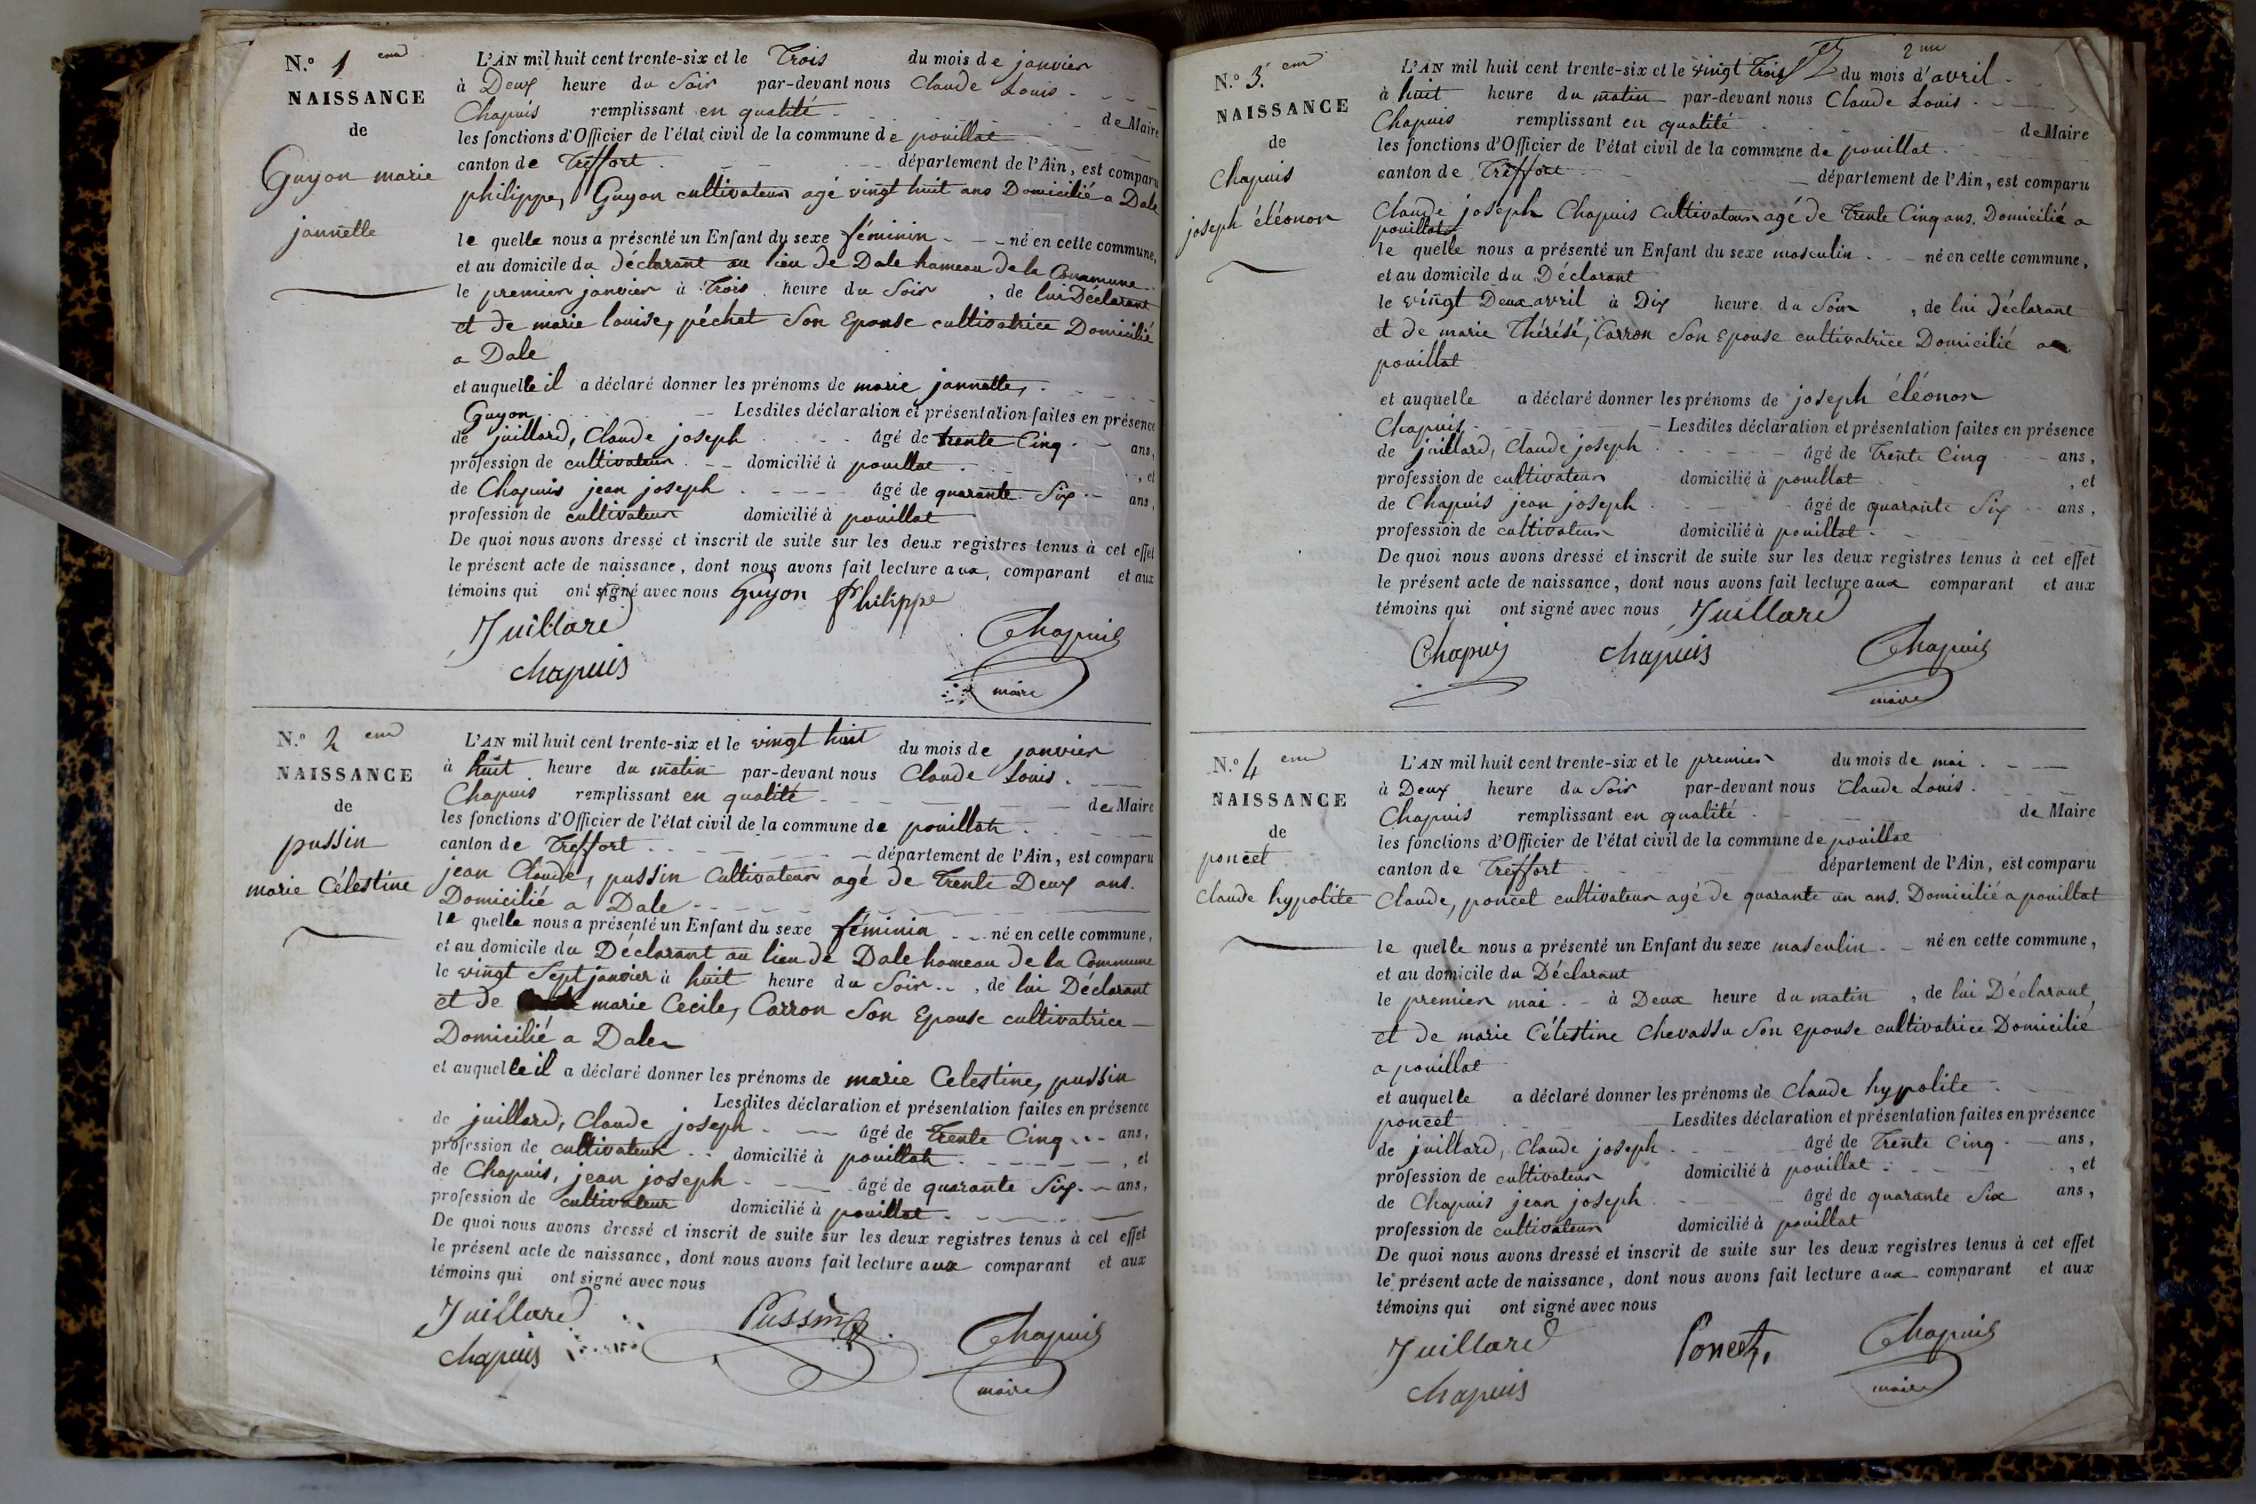 N.º 1 em
NAISSANCE
de
Guyon marie
jannette
L'AN mil huit cent trente-six et le Trois du mois de janvier
à Deux heure du Soir par-devant nous Claude Louis
Chapuis remplissant en qualité de Maire
les fonctions d'Officier de l'état civil de la commune de pouillat
canton de Treffort département de l'Ain, est comparu
philippe, Guyon cultivateur agé vingt huit ans Domicilié a Dale
le quelle nous a présenté un Enfant du sexe féminin né en cette commune,
et au domicile du déclarant au lieu de Dale hameau de la Commune
le premier janvier à Trois heure du Soir, de lui Déclarant
et de marie louise, péchet Son Epouse cultivatrice Domicilié
a Dale
et auquelle il a déclaré donner les prénoms de marie jannette,
Guyon Lesdites déclaration et présentation faites en présence
de juillard, Claude joseph âgé de trente Cinq ans,
profession de cultivateur domicilié à pouillat, et
de Chapuis jean joseph âgé de quarante Six ans,
profession de cultivateur domicilié à pouillat
De quoi nous avons dressé et inscrit de suite sur les deux registres tenus à cet effet
le présent acte de naissance, dont nous avons fait lecture aux, comparant et aux
témoins qui ont signé avec nous Guyon philippe
Juillard Chapuis
chapuis maire
N.º 2 em
NAISSANCE
de
pussin
marie Célestine
L'AN mil huit cent trente-six et le vingt huit du mois de janvier
à huit heure du matin par-devant nous Claude Louis
Chapuis remplissant en qualité de Maire
les fonctions d'Officier de l'état civil de la commune de pouillat
canton de Treffort département de l'Ain, est comparu
jean Claude, pussin Cultivateur agé de Trente Deux ans.
Domicilié a Dale
le quelle nous a présenté un Enfant du sexe féminin né en cette commune,
et au domicile du Déclarant au lieu de Dale hameau de la Commune
le vingt Sept janvier à huit heure du Soir, de lui Déclarant
et de marie Cecile, Carron Son Epouse cultivatrice
Domicilié a Dale
et auquelle il a déclaré donner les prénoms de marie Celestine, pussin
Lesdites déclaration et présentation faites en présence
de juillard, Claude joseph âgé de Trente Cinq ans,
profession de cultivateur domicilié à pouillat, et
de Chapuis, jean joseph âgé de quarante Six ans,
profession de cultivateur domicilié à pouillat
De quoi nous avons dressé et inscrit de suite sur les deux registres tenus à cet effet
le présent acte de naissance, dont nous avons fait lecture aux comparant et aux
témoins qui ont signé avec nous
Juillard Pussin Chapuis
chapuis maire
2me
N.º 3. em
NAISSANCE
de
Chapuis
joseph éléonor
L'AN mil huit cent trente-six et le vingt Trois du mois d'avril
à huit heure du matin par-devant nous Claude Louis
Chapuis remplissant en qualité de Maire
les fonctions d'Officier de l'état civil de la commune de pouillat
canton de Treffort département de l'Ain, est comparu
Claude joseph Chapuis Cultivateur agé de Trente Cinq ans. Domicilié a
pouillat
le quelle nous a présenté un Enfant du sexe masculin né en cette commune,
et au domicile du Déclarant
le vingt Deux avril à Dix heure du Soir, de lui déclarant
et de marie Thérésé, Carron Son Epouse cultivatrice Domicilié a
pouillat
et auquelle a déclaré donner les prénoms de joseph éléonor
Chapuis Lesdites déclaration et présentation faites en présence
de juillard, Claude joseph âgé de Trente Cinq ans,
profession de cultivateur domicilié à pouillat, et
de Chapuis jean joseph âgé de quarante Six ans,
profession de cultivateur domicilié à pouillat
De quoi nous avons dressé et inscrit de suite sur les deux registres tenus à cet effet
le présent acte de naissance, dont nous avons fait lecture aux comparant et aux
témoins qui ont signé avec nous Juillard
Chapuy chapuis Chapuis
maire
N.º 4 em
NAISSANCE
de
poncet
Claude hypolite
L'AN mil huit cent trente-six et le premier du mois de mai
à Deux heure du Soir par-devant nous Claude Louis
Chapuis remplissant en qualité de Maire
les fonctions d'Officier de l'état civil de la commune de pouillat
canton de Treffort département de l'Ain, est comparu
Claude, poncet cultivateur agé de quarante un ans. Domicilié a pouillat
le quelle nous a présenté un Enfant du sexe masculin né en cette commune,
et au domicile du Déclarant
le premier mai à Deux heure du matin, de lui Déclarant,
et de marie Célestine Chevassu Son epouse cultivatrice Domicilié
a pouillat
et auquelle a déclaré donner les prénoms de Claude hypolite
poncet Lesdites déclaration et présentation faites en présence
de juillard, Claude joseph âgé de Trente Cinq ans,
profession de cultivateur domicilié à pouillat, et
de Chapuis jean joseph âgé de quarante Six ans,
profession de cultivateur domicilié à pouillat
De quoi nous avons dressé et inscrit de suite sur les deux registres tenus à cet effet
le présent acte de naissance, dont nous avons fait lecture aux comparant et aux
témoins qui ont signé avec nous
Juillard Poncet Chapuis
chapuis maire